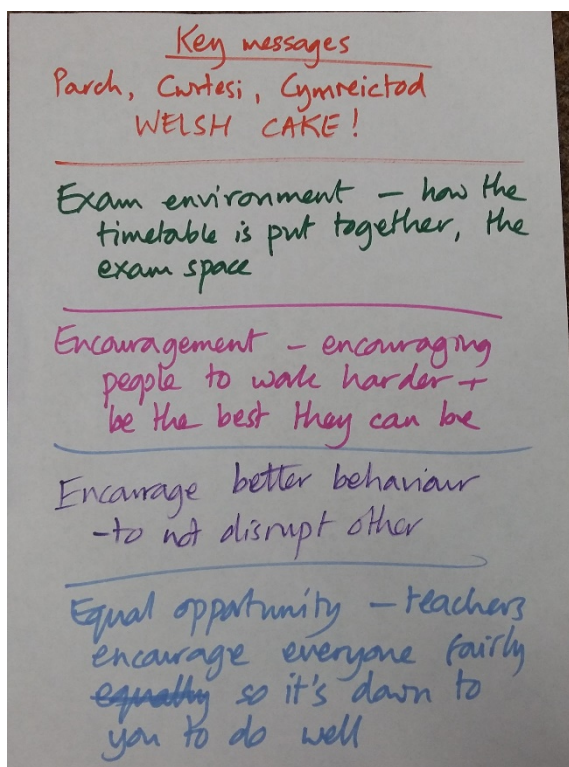 Key messages
Parch, Cwrtesi, Cymreictod
WELSH CAKE!
Exam environment – how the
timetable is put together, the
exam space
Encouragement – encouraging
people to work harder +
be the best they can be
Encourage better behaviour
-to not disrupt other
Equal opportunity – teachers
encourage everyone fairly
equally so it's down to
you to do well